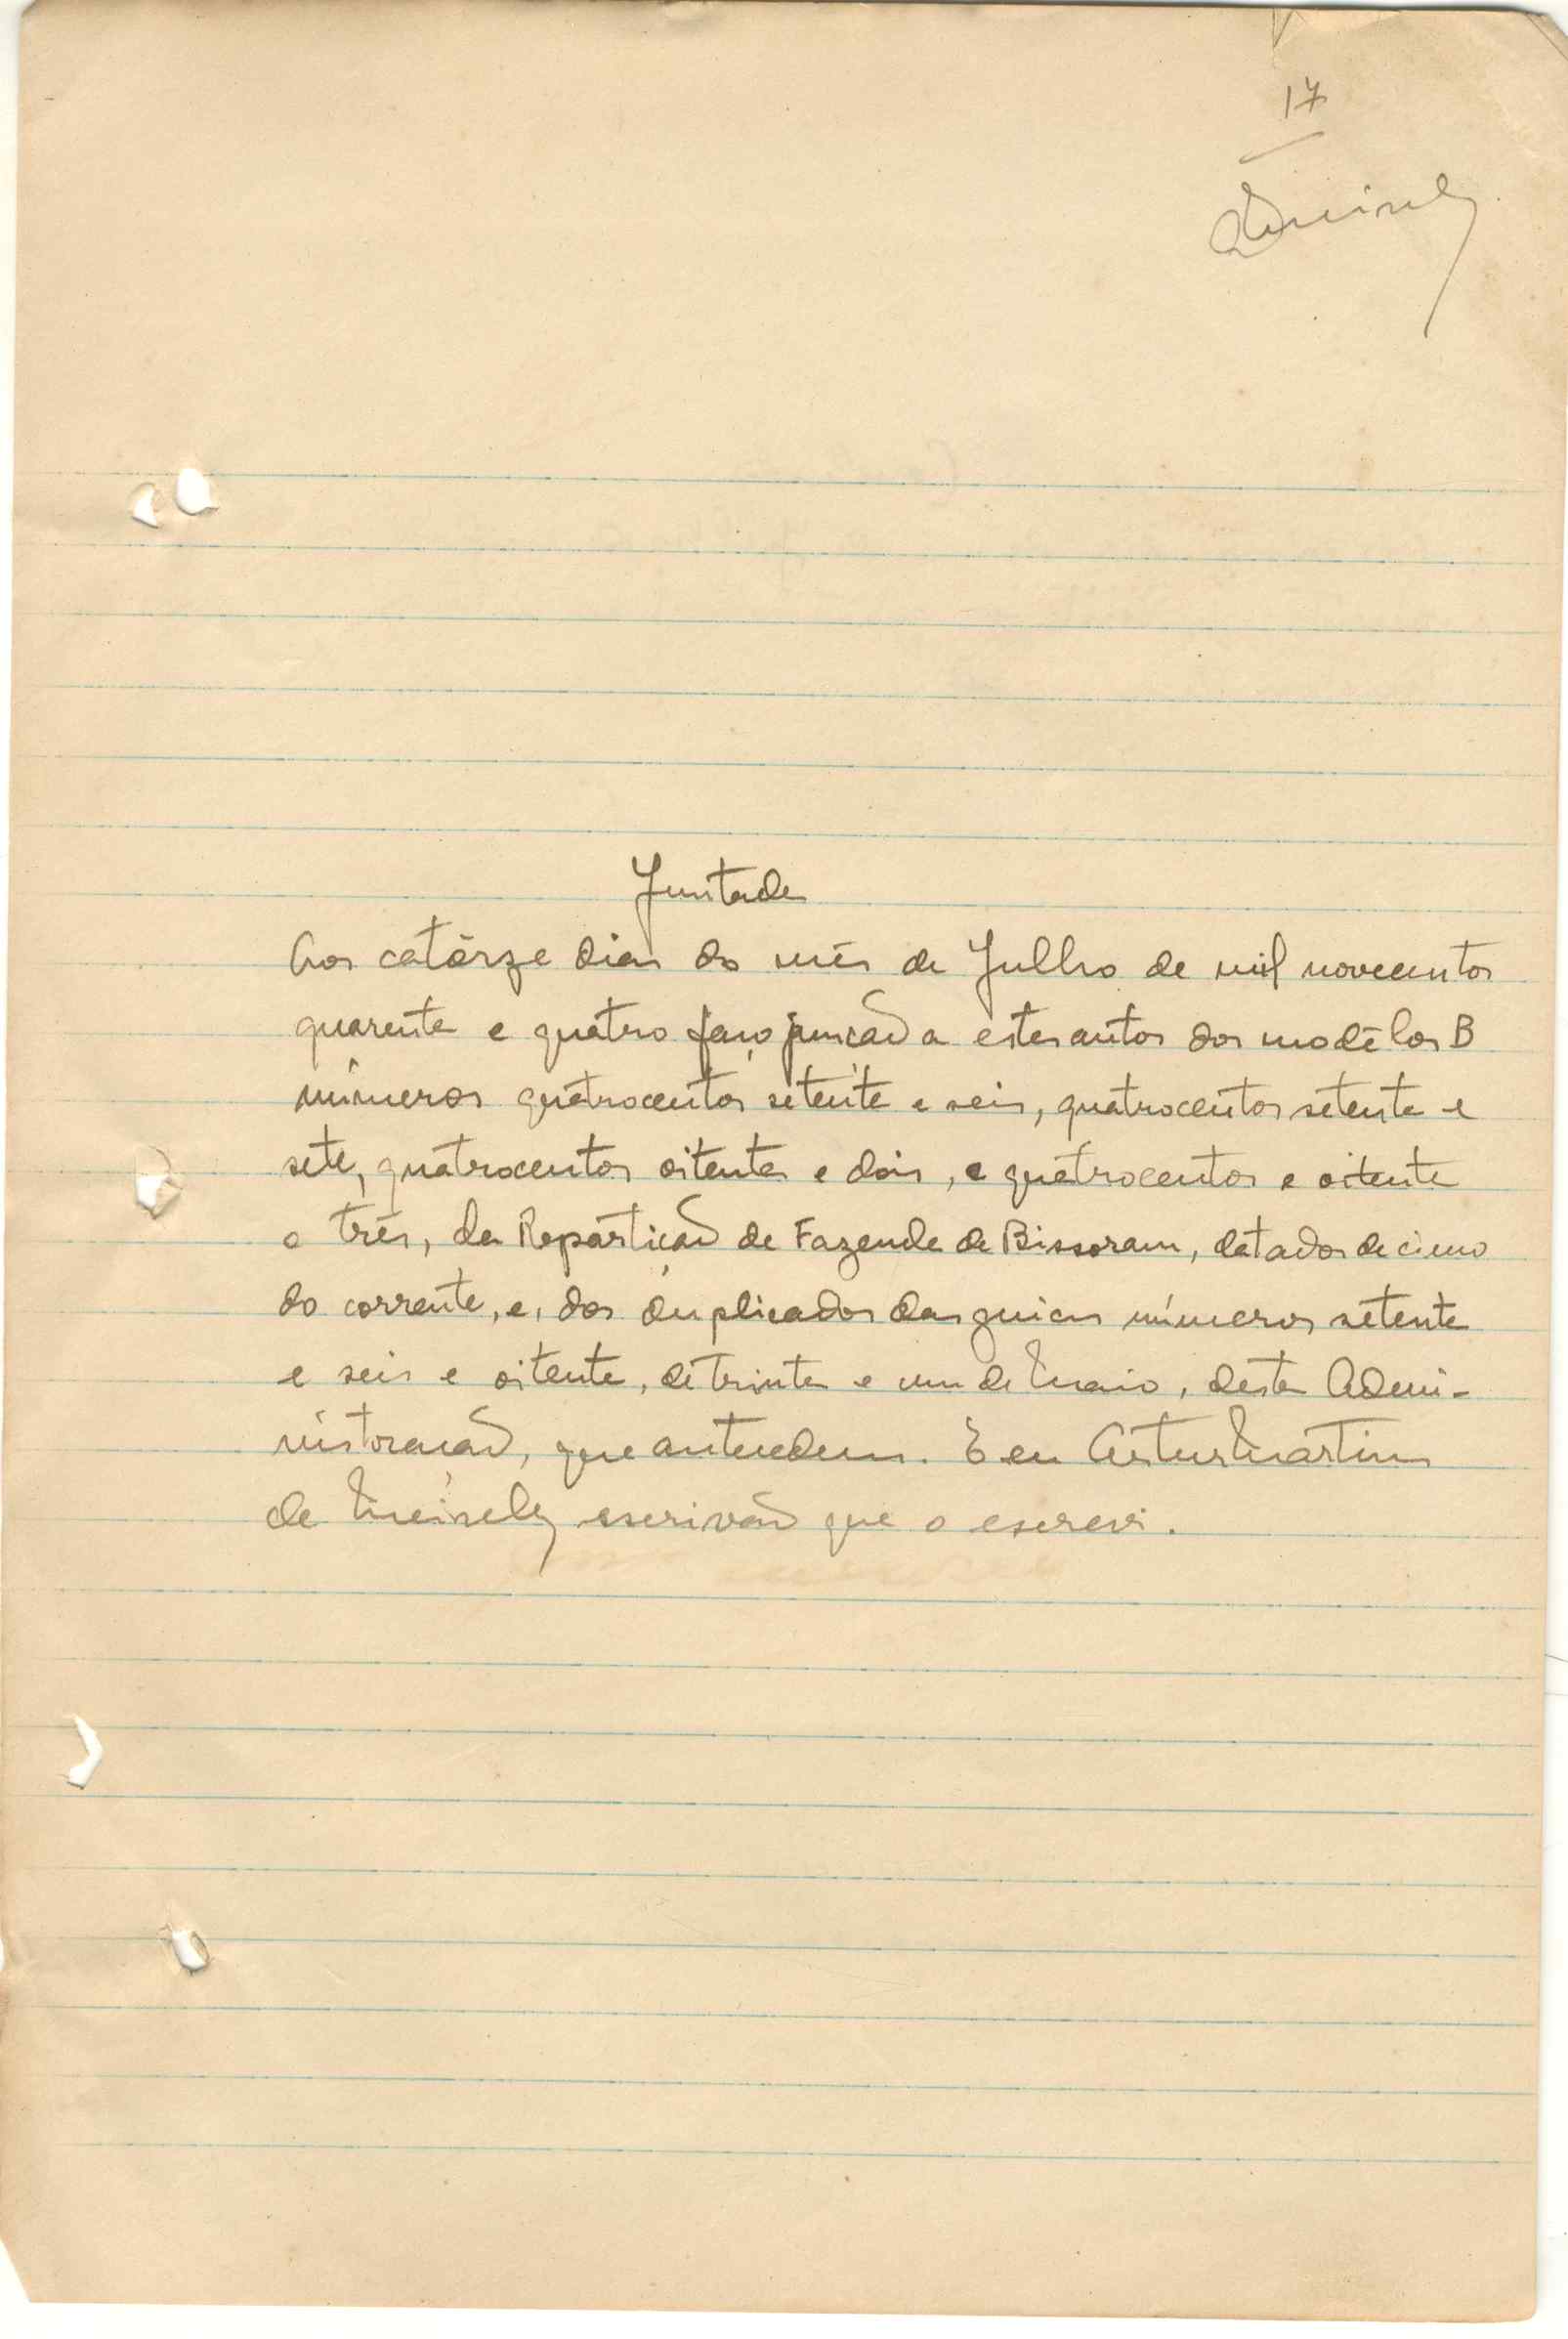 17
Meireles
Juntada
Aos catôrze dias do mês de Julho de mil novecentos
quarenta e quatro faço junção a estes autos dos modêlos B
números quatrocentos setenta e seis, quatrocentos setenta e
sete, quatrocentos oitenta e dois, e quatrocentos e oitenta
e três, da Repartição de Fazenda de Bissoram, datados de cinco
do corrente, e, dos duplicados das guias números setenta
e seis e oitenta, de trinta e um de Maio, desta Admi-
nistração, que antecedem. E eu Artur Martins
de Meireles escrivão que o escrevi.